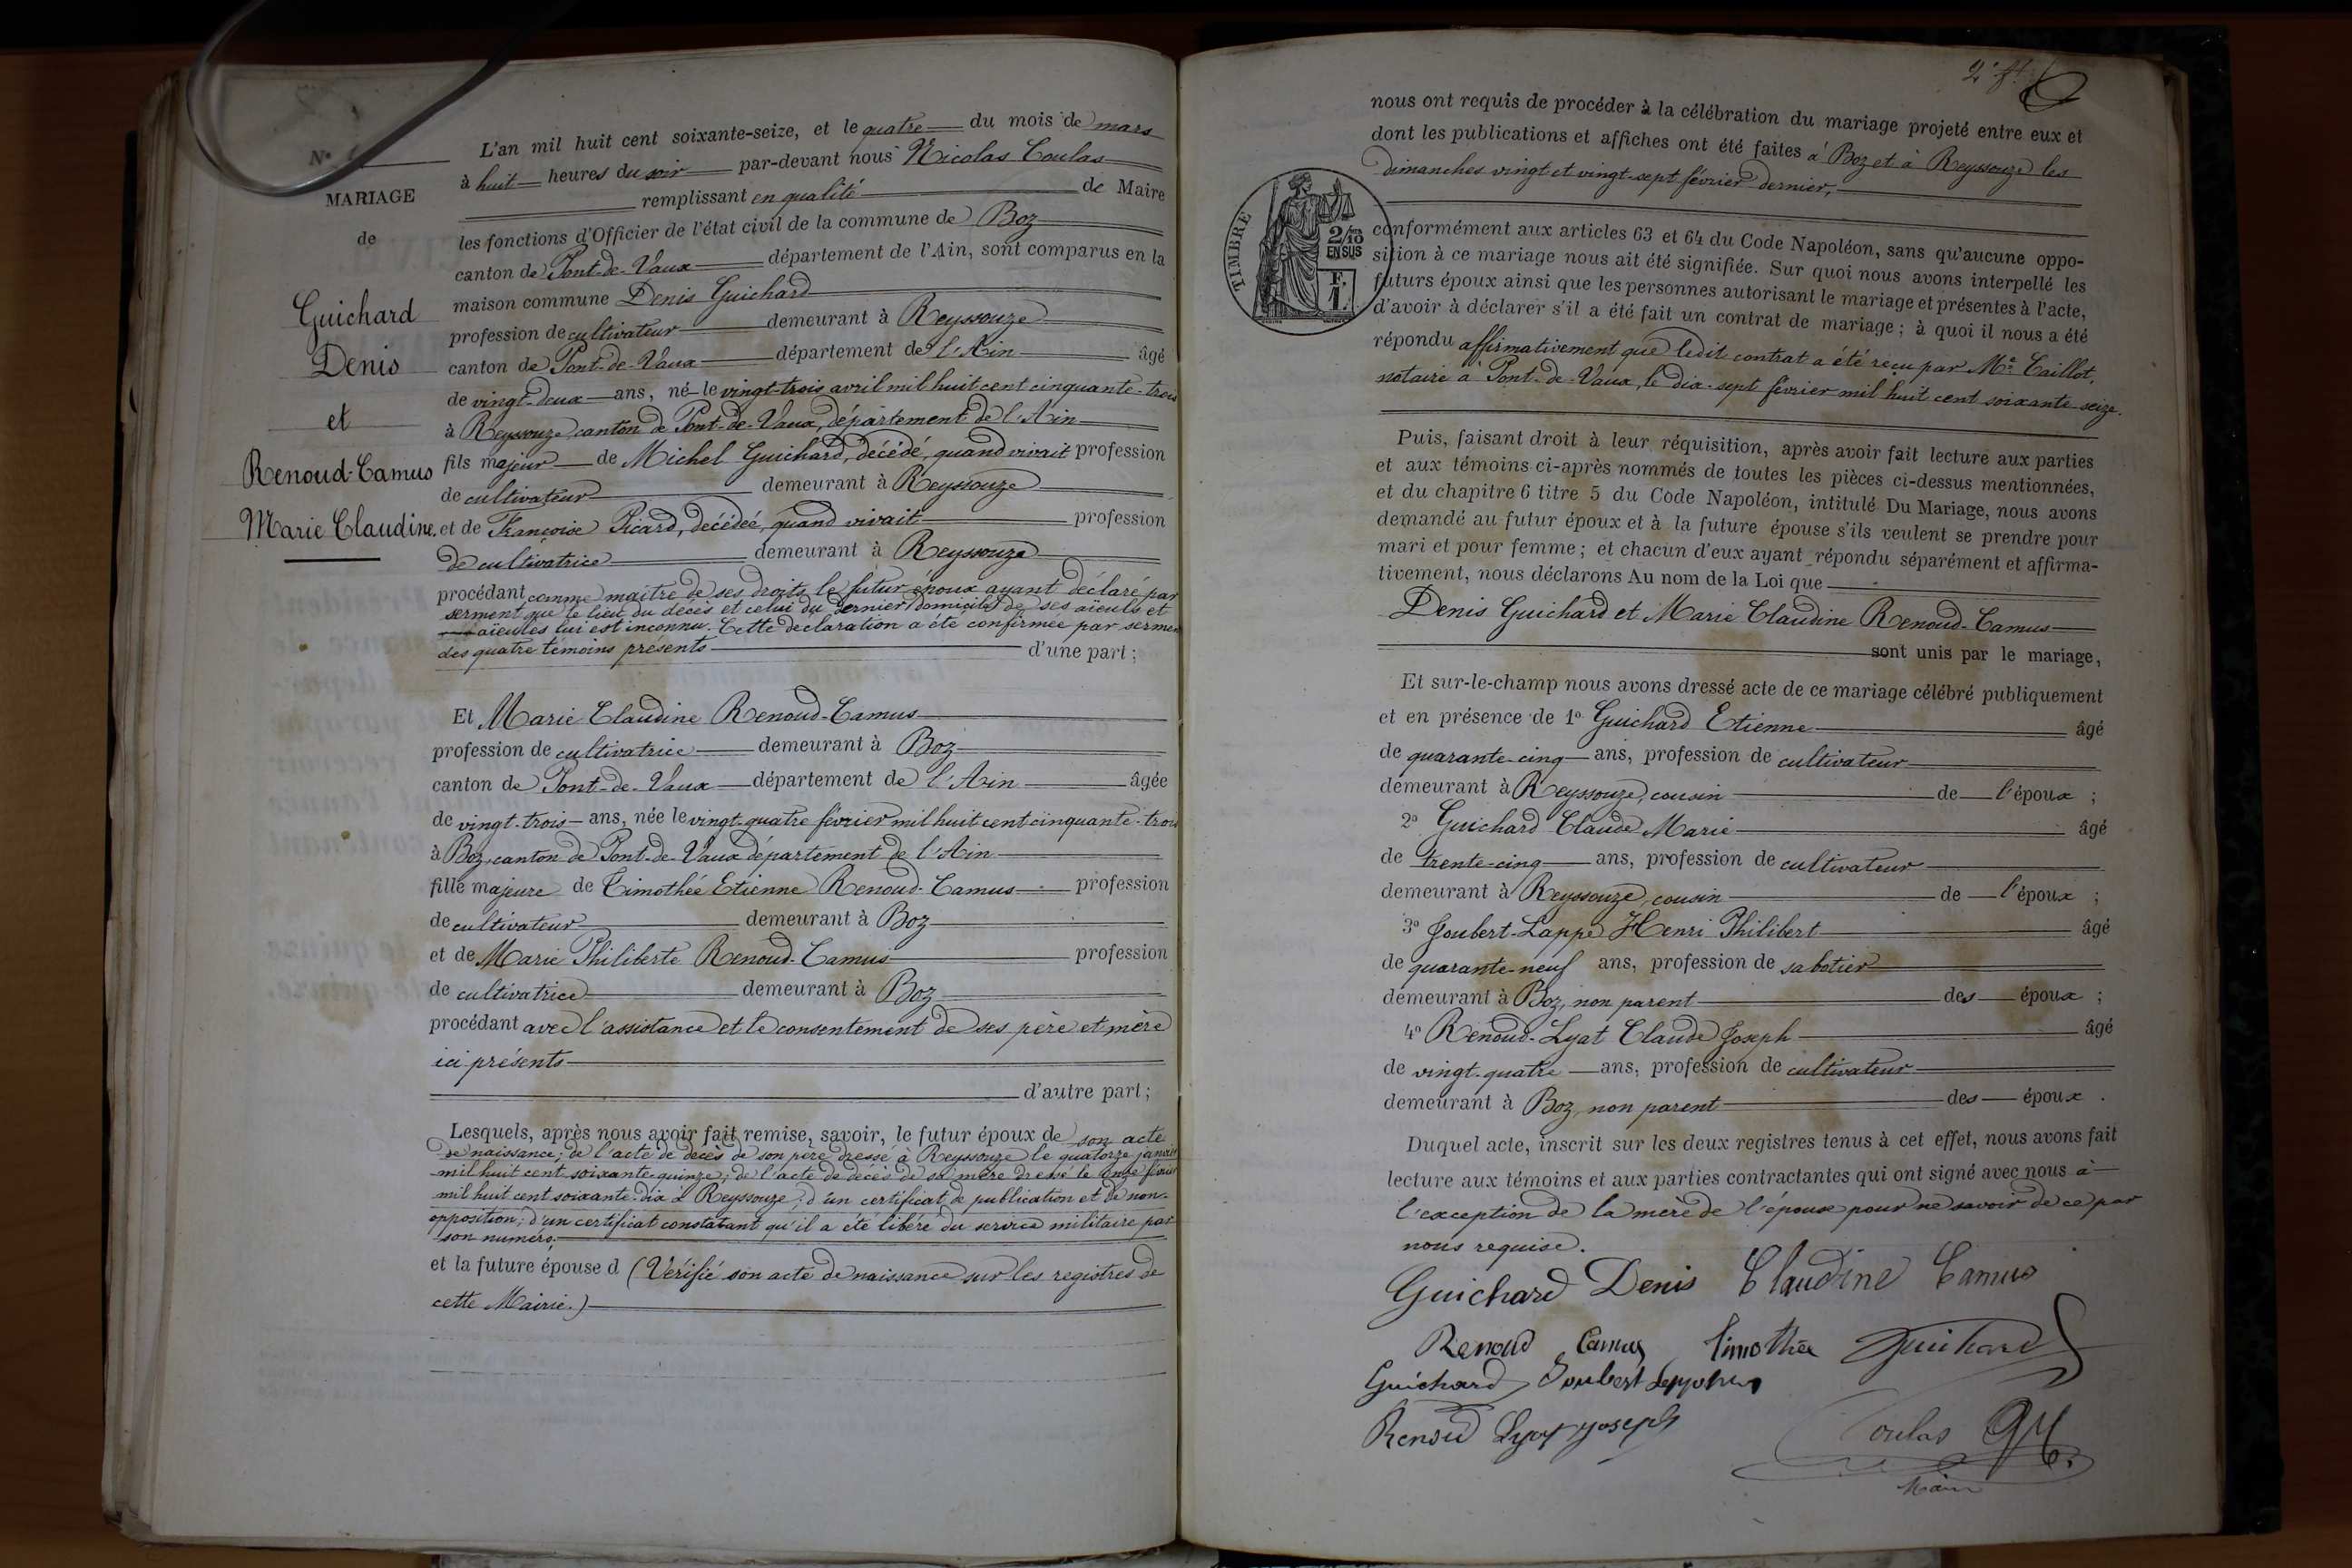 N°
MARIAGE
de
Guichard
Denis
et
Renoud-Camus
Marie Claudine.
L'an mil huit cent soixante-seize, et le quatre du mois de mars
à huit heures du soir par-devant nous Nicolas Coulas
remplissant en qualité de Maire
les fonctions d'Officier de l'état civil de la commune de Boz
canton de Pont-de-Vaux département de l'Ain, sont comparus en la
maison commune Denis Guichard
profession de cultivateur demeurant à Reyssouze
canton de Pont-de-Vaux département de l'Ain âgé
de vingt-deux ans, né le vingt-trois avril mil huit cent cinquante-trois
à Reyssouze, canton de Pont-de-Vaux, département de l'Ain
fils majeur de Michel Guichard, décédé, quand vivait profession
de cultivateur demeurant à Reyssouze
et de Françoise Picard, décédée, quand vivait profession
de cultivatrice demeurant à Reyssouze
procédant comme maître de ses droits, le futur époux ayant déclaré par
serment que le lieu du décès et celui du dernier domicile de ses aïeuls et
aïeules lui est inconnu. Cette déclaration a été confirmée par serment
des quatre témoins présents d'une part ;
Et Marie Claudine Renoud-Camus
profession de cultivatrice demeurant à Boz
canton de Pont-de-Vaux département de l'Ain âgée
de vingt-trois ans, née le vingt-quatre février mil huit cent cinquante-trois
à Boz, canton de Pont-de-Vaux département de l'Ain
fille majeure de Timothée Etienne Renoud-Camus profession
de cultivateur demeurant à Boz
et de Marie Philiberte Renoud-Camus profession
de cultivatrice demeurant à Boz
procédant avec l'assistance et le consentement de ses père et mère
ici présents
d'autre part ;
Lesquels, après nous avoir fait remise, savoir, le futur époux de son acte
de naissance; de l'acte de décès de son père dressé à Reyssouze le quatorze janvier
mil huit cent soixante-quinze; de l'acte de décès de sa mère dressé le onze février
mil huit cent soixante-dix à Reyssouze; d'un certificat de publication et de non-
opposition; d'un certificat constatant qu'il a été libéré du service militaire par
son numéro.
et la future épouse d (Vérifié son acte de naissance sur les registres de
cette Mairie.)
2e ft
nous ont requis de procéder à la célébration du mariage projeté entre eux et
dont les publications et affiches ont été faites à Boz et à Reyssouze les
dimanches vingt et vingt-sept février dernier,
TIMBRE
2/10
EN SUS
F.
1.
conformément aux articles 63 et 64 du Code Napoléon, sans qu'aucune oppo-
sition à ce mariage nous ait été signifiée. Sur quoi nous avons interpellé les
futurs époux ainsi que les personnes autorisant le mariage et présentes à l'acte,
d'avoir à déclarer s'il a été fait un contrat de mariage ; à quoi il nous a été
répondu affirmativement que ledit contrat a été reçu par Me Caillot,
notaire à Pont-de-Vaux, le dix-sept février mil huit cent soixante-seize.
Puis, faisant droit à leur réquisition, après avoir fait lecture aux parties
et aux témoins ci-après nommés de toutes les pièces ci-dessus mentionnées,
et du chapitre 6 titre 5 du Code Napoléon, intitulé Du Mariage, nous avons
demandé au futur époux et à la future épouse s'ils veulent se prendre pour
mari et pour femme ; et chacun d'eux ayant répondu séparément et affirma-
tivement, nous déclarons Au nom de la Loi que
Denis Guichard et Marie Claudine Renoud-Camus
sont unis par le mariage,
Et sur-le-champ nous avons dressé acte de ce mariage célébré publiquement
et en présence de 1° Guichard Etienne âgé
de quarante-cinq ans, profession de cultivateur
demeurant à Reyssouze, cousin de l'époux ;
2° Guichard Claude Marie âgé
de trente-cinq ans, profession de cultivateur
demeurant à Reyssouze, cousin de l'époux ;
3° Joubert-Lappe Henri Philibert âgé
de quarante-neuf ans, profession de sabotier
demeurant à Boz, non parent des époux ;
4° Renoud-Lyat Claude Joseph âgé
de vingt-quatre ans, profession de cultivateur
demeurant à Boz, non parent des époux .
Duquel acte, inscrit sur les deux registres tenus à cet effet, nous avons fait
lecture aux témoins et aux parties contractantes qui ont signé avec nous à
l'exception de la mère de l'épouse pour ne savoir de ce par
nous requise.
Guichard Denis Claudine Camus
Renoud Camus Timothée Guichard
Guichard Joubert
Renoud Lyat Joseph
Coulas
Maire